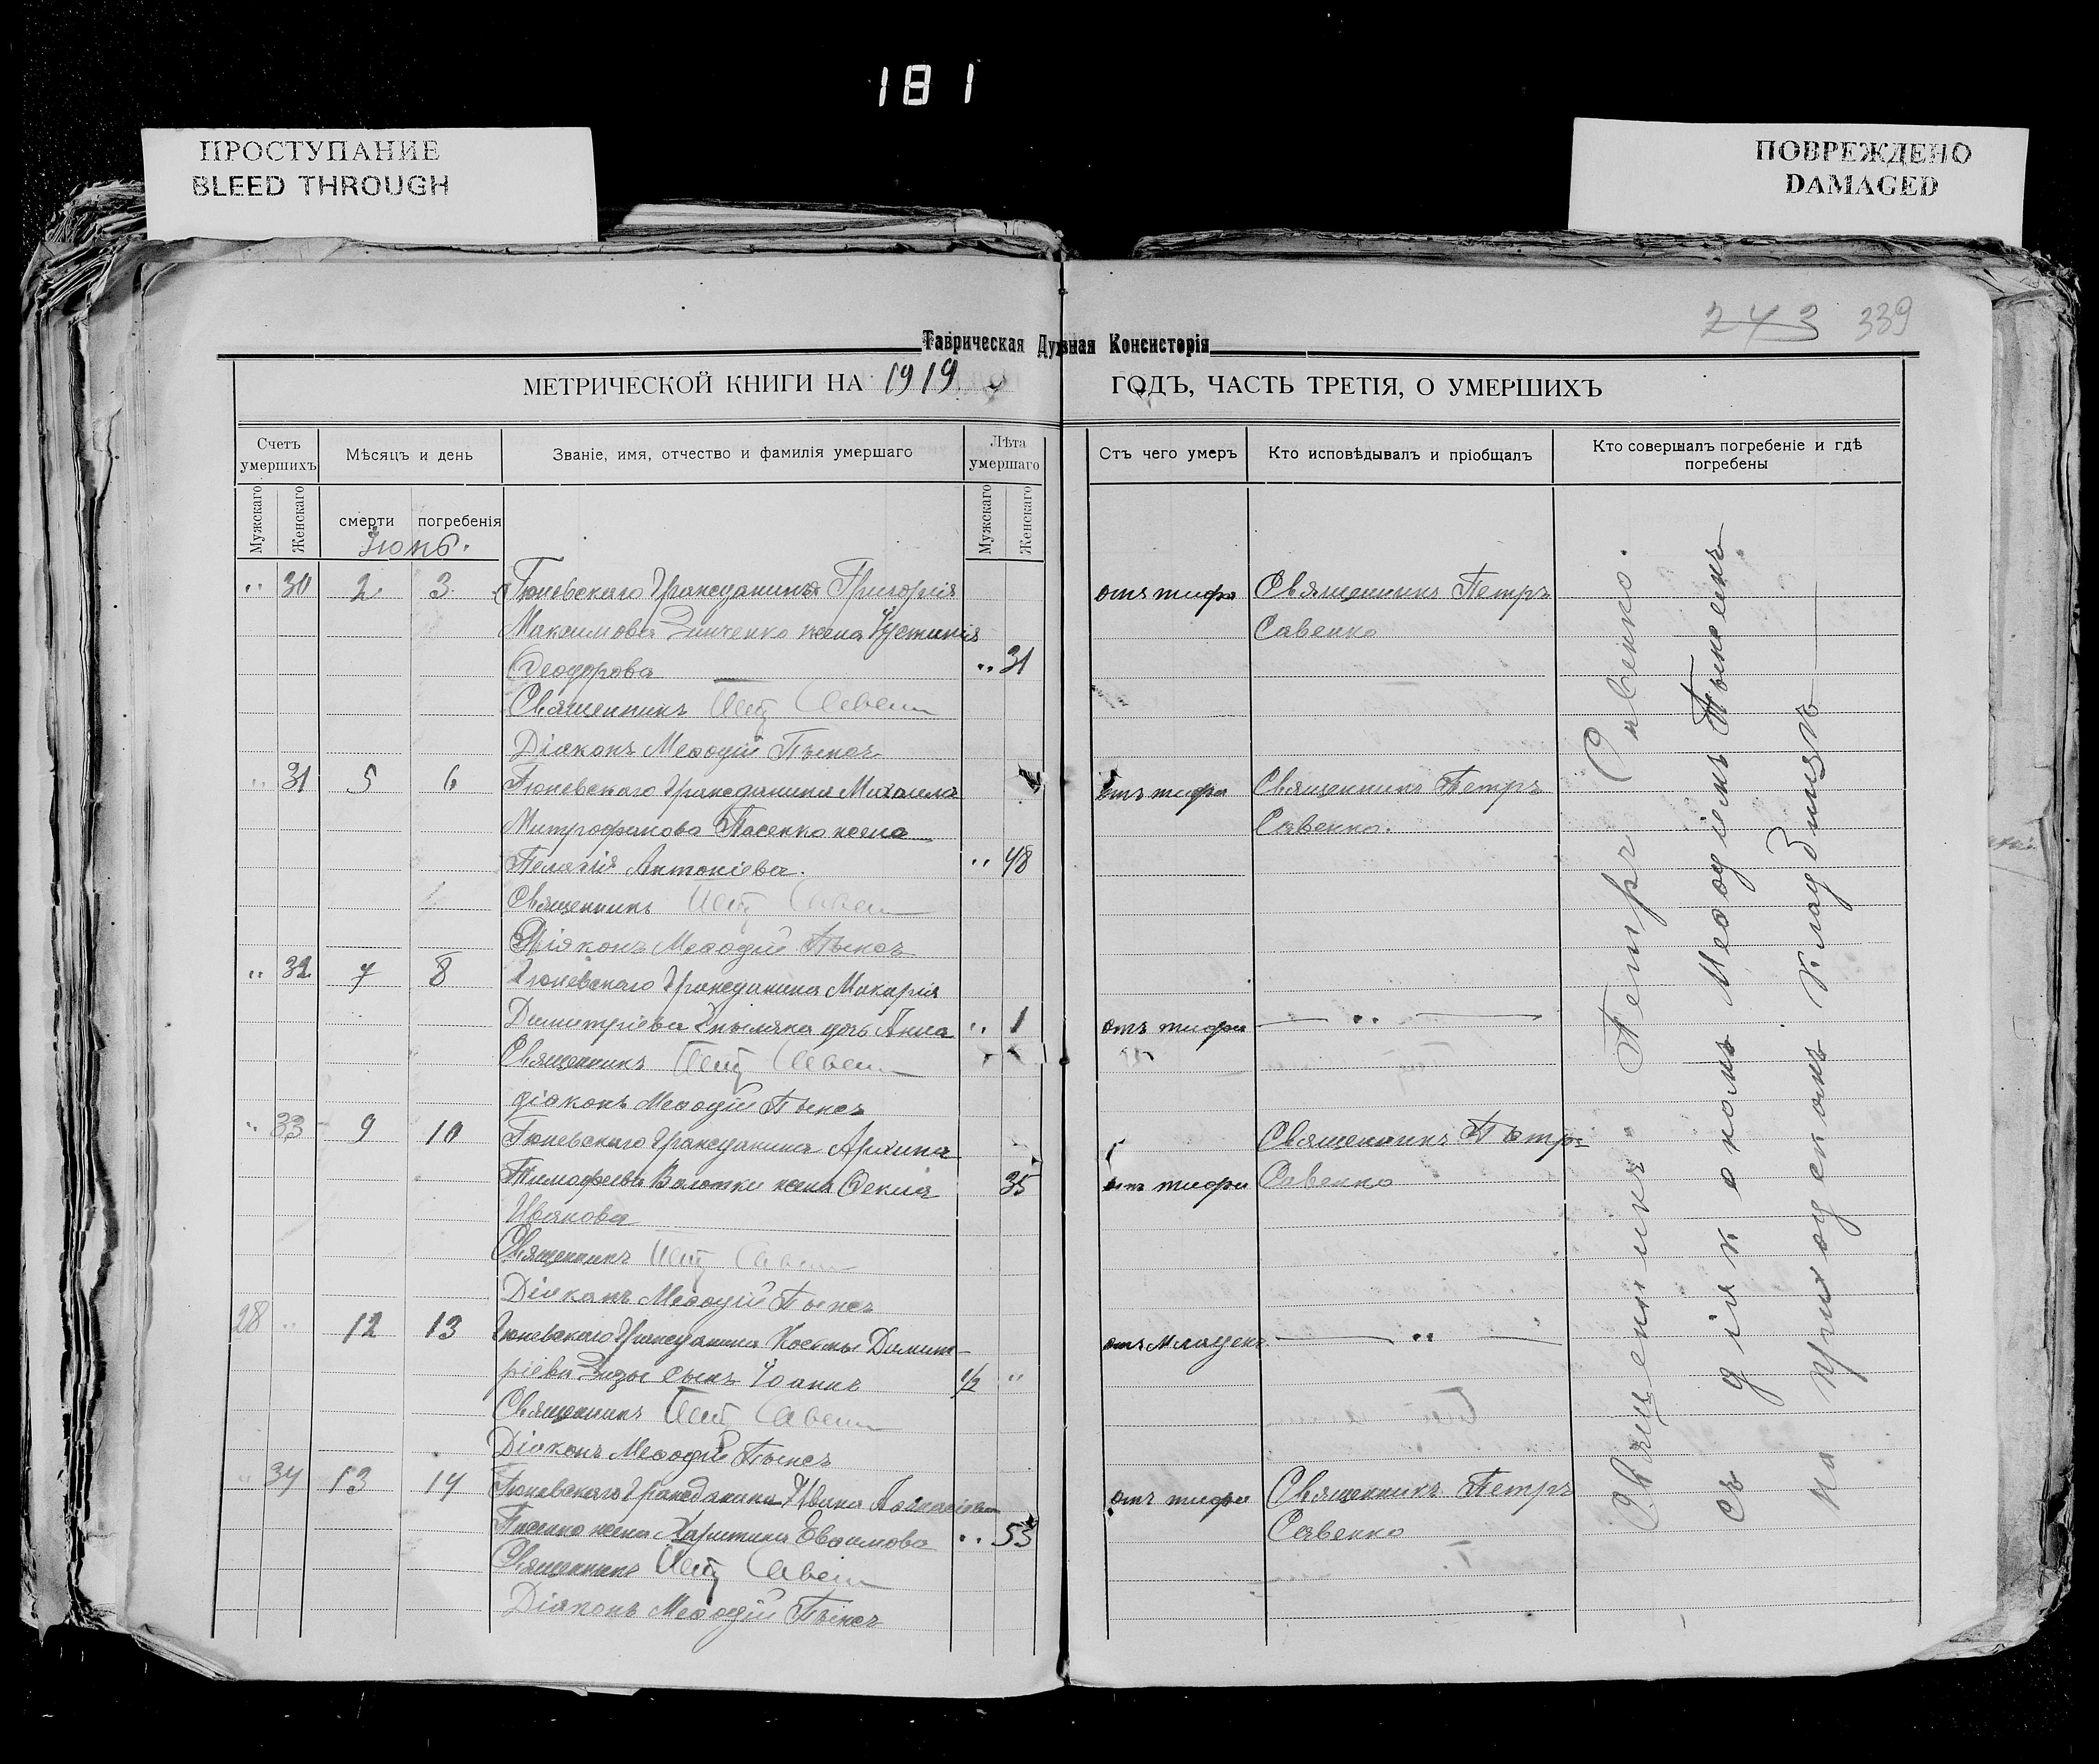 181
ПРОСТУПАНИЕ
BLEED THROUGH
ПОВРЕЖДЕНО
DAMAGED
243 339
Таврическая Духвная Консисторія
МЕТРИЧЕСКОЙ КНИГИ НА 1919
ГОДЪ, ЧАСТЬ ТРЕТІЯ, О УМЕРШИХЪ
Счетъ умершихъ
Мѣсяцъ и день
Званіе, имя, отчество и фамилія умершаго
Лѣта умершаго
Стъ чего умеръ
Кто исповѣдывалъ и пріобщалъ
Кто совершалъ погребеніе и гдѣ погребены
Мужскаго
Женскаго
смерти
погребенія
Мужскаго
Женскаго
Іюнь.
" 30 2. 3. Гюневскаго Гражданина Григорія отъ тифа Священникъ Петръ
Максимова Зинченко жена Іустинія Савенко
Ѳеодорова " 31
Священникъ Петръ Савенко
Діаконъ Меѳодій
" 31 5 6 Гюневскаго Гражданина Михаила отъ тифа Священникъ Петръ
Митрофанова Пасенко жена Савенко.
Пелагія Антоніева. " 48
Священникъ Петръ Савенко
Діаконъ Меѳодій
" 32 7 8 Гюневскаго Гражданина Макарія
Димитріева дочь Анна " 1 отъ тифа — " —
Священникъ Петръ Савенко
діаконъ Меѳодій
" 33 9 10 Гюневскаго Гражданина Архипа Священникъ Петръ
Тимофеева жена Ѳекла 35 отъ тифа Савенко
Ивановa
Священникъ Петръ Савенко
Діаконъ Меѳодій
28 " 12 13 Гюневскаго Гражданина Космы Димит- отъ младен. — " —
ріева сынъ Іоаннъ 1/2 "
Священникъ Петръ Савенко
Діаконъ Меѳодій
" 34 13 14 Гюневскаго Гражданина Ивана отъ тифа Священникъ Петръ
Пасенко жена Харитина Евѳимова " 53 Савенко
Священникъ Петръ Савенко
Діаконъ Меѳодій
Священникъ Петръ Савенко.
съ діакономъ Меѳодіемъ
на приходскомъ кладбищѣ